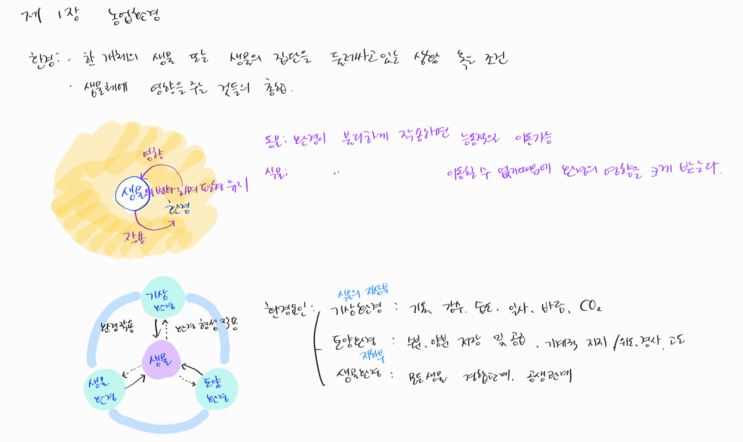 제 1장 농업환경
환경: · 한 개체의 생물 또는 생물의 집단을 둘러싸고 있는 상황 혹은 조건
· 생물체에 영향을 주는 것들의 총합.
영향
생물의 변화하며 평형 유지
환경
작용
동물: 환경이 불리하게 작용하면 능동적으로 이동가능
식물: 〃 이동할 수 없기때문에 환경의 영향을 크게 받는다.
기상환경
환경작용
환경형성작용
생물
생물환경
토양환경
식물의 지상부
환경요인: 기상환경: 기온, 강수, 습도, 일사, 바람, CO2
토양환경: 수분, 양분 저장 및 공급, 기계적 지지 / 위도, 경사, 고도
지하부
생물환경: 모든생물 경합관계, 공생관계